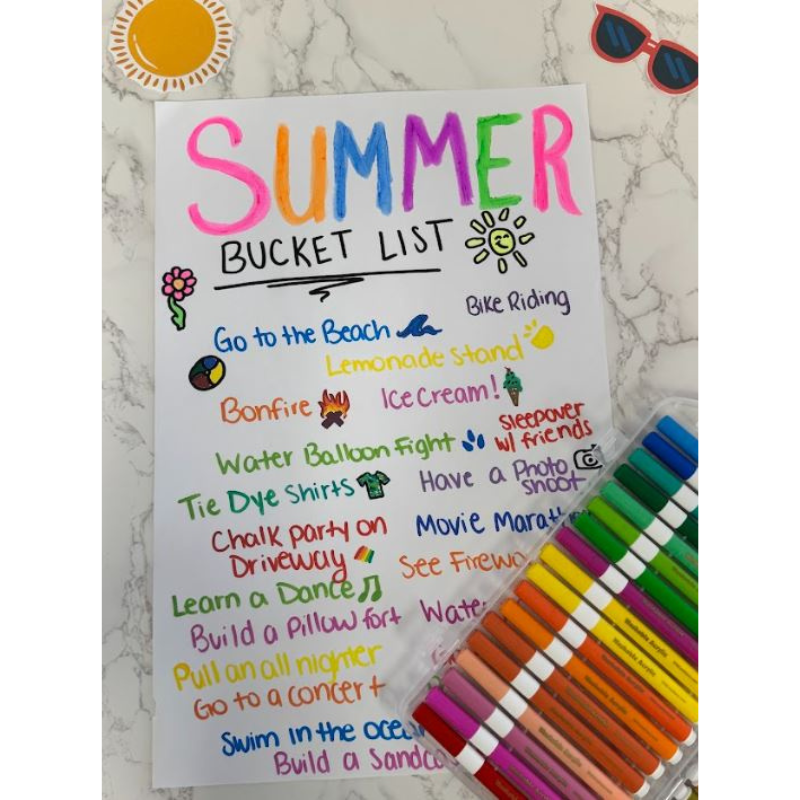 SUMMER
BUCKET LIST
Bike Riding
Go to the Beach
Lemonade stand
Bonfire
Ice Cream!
Sleepover
w/ friends
Water Balloon Fight
Tie Dye Shirts
Have a Photo
shoot
Chalk party on
Driveway
Movie
See
Learn a Dance
Build a Pillow fort
Pull an all nighter
Go to a concert
Swim in the
Build a
Washable Acrylic
Washable Acrylic
Washable Acrylic
Washable Acrylic